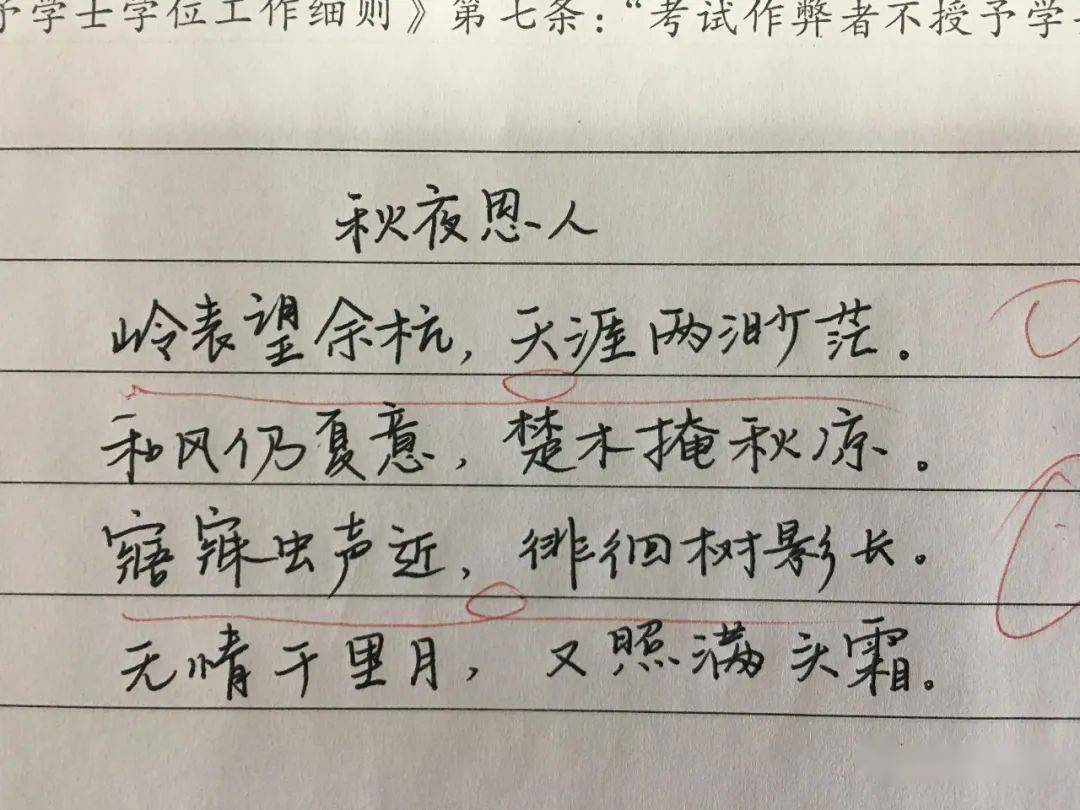 予学士学位工作细则》第七条：“考试作弊者不授予学
秋夜思人
岭表望余杭，天涯两渺茫。
和风仍夏意，楚木掩秋凉。
寤寐虫声近，徘徊树影长。
无情千里月，又照满头霜。